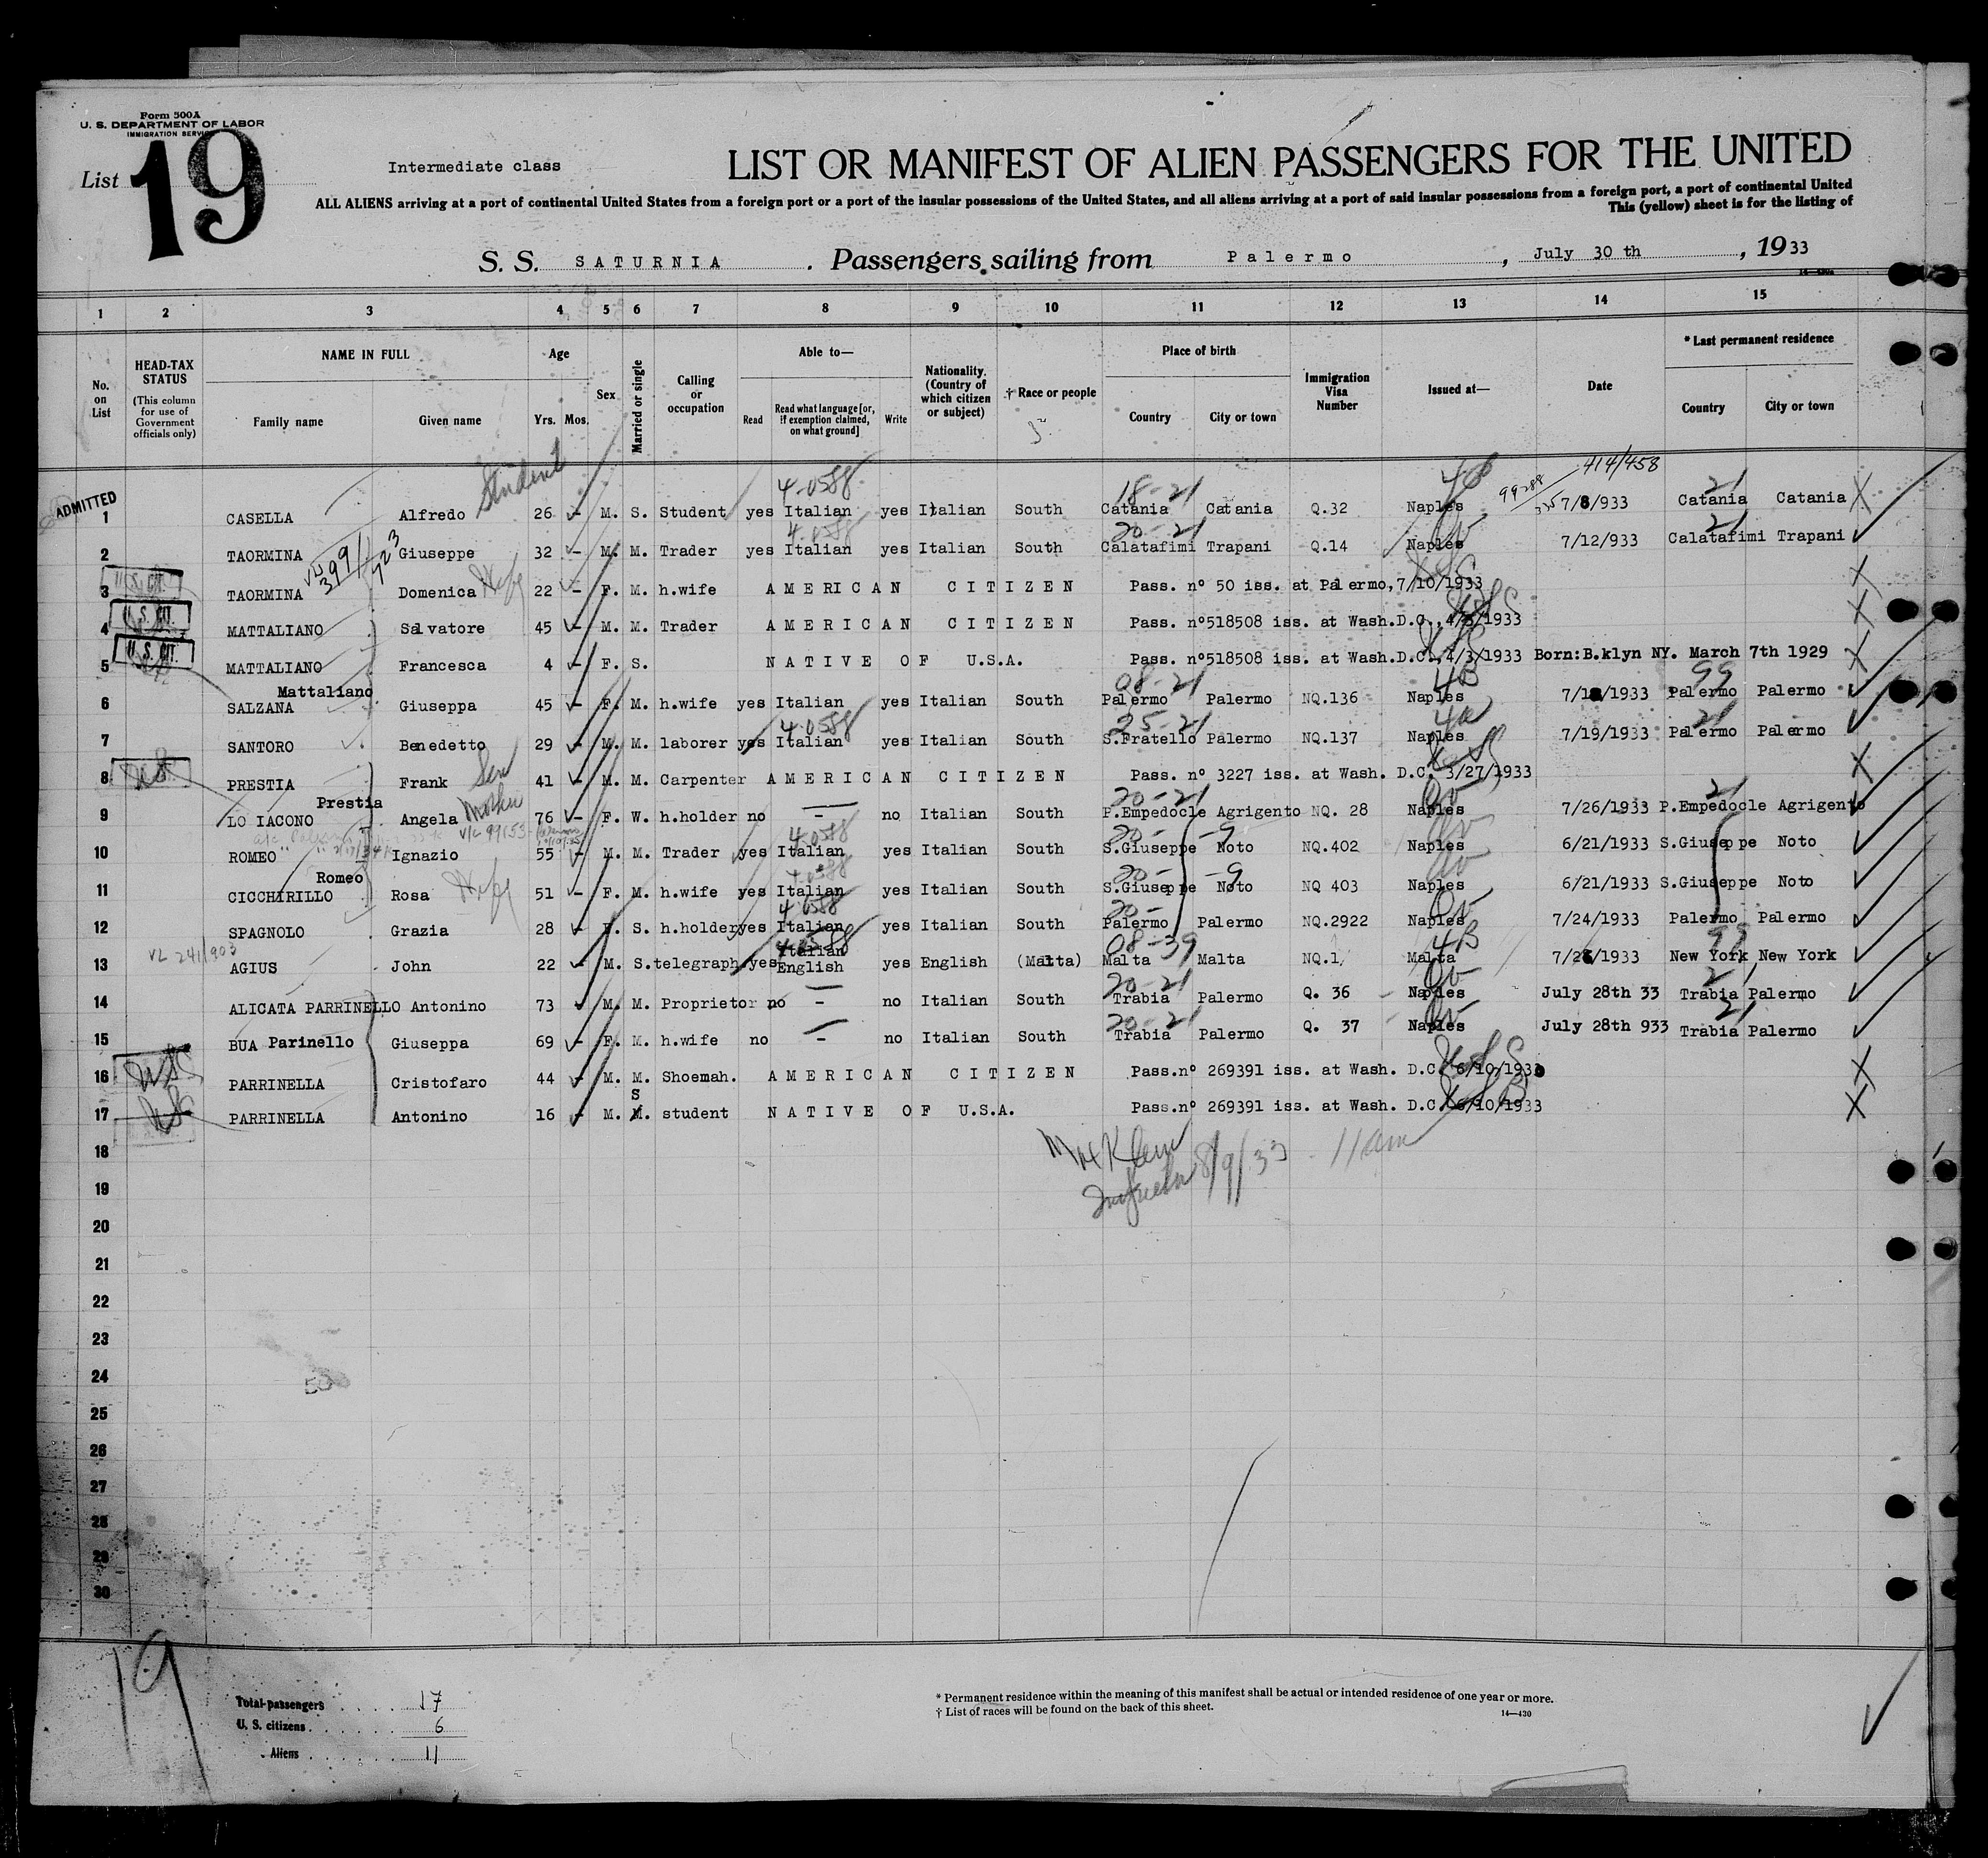 Form 500A
U. S. DEPARTMENT OF LABOR
IMMIGRATION SERVICE
List 19
Intermediate class
LIST OR MANIFEST OF ALIEN PASSENGERS FOR THE UNITED
ALL ALIENS arriving at a port of continental United States from a foreign port or a port of the insular possessions of the United States, and all aliens arriving at a port of said insular possessions from a foreign port, a port of continental United
This (yellow) sheet is for the listing of
S. S. SATURNIA . Passengers sailing from Palermo , July 30 th , 1933
1 2 3 4 5 6 7 8 9 10 11 12 13 14 15
No. on List
HEAD-TAX STATUS
(This column for use of Government officials only)
NAME IN FULL
Family name Given name
Age
Yrs. Mos.
Sex
Married or single
Calling or occupation
Able to—
Read Read what language [or, if exemption claimed, on what ground] Write
Nationality. (Country of which citizen or subject)
† Race or people
Place of birth
Country City or town
Immigration Visa Number
Issued at—
Date
* Last permanent residence
Country City or town
Student 4-0588 18-21 99288 414/458 21
ADMITTED
1 CASELLA Alfredo 26 - M. S. Student yes Italian yes Italian South Catania Catania Q.32 Naples 7/8/933 Catania Catania X
4-0588 20-21 21
2 TAORMINA Giuseppe 32 - M. M. Trader yes Italian yes Italian South Calatafimi Trapani Q.14 Naples 7/12/933 Calatafimi Trapani
U. S. CIT.
3 TAORMINA Domenica Wife 22 - F. M. h.wife AMERICAN CITIZEN Pass. nº 50 iss. at Palermo,7/10/1933 X
U. S. CIT.
4 MATTALIANO Salvatore 45 - M. M. Trader AMERICAN CITIZEN Pass. nº518508 iss. at Wash.D.C.,4/3/1933 X
U. S. CIT.
5 MATTALIANO Francesca 4 - F. S. NATIVE OF U.S.A. Pass. nº518508 iss. at Wash.D.C.,4/3/1933 Born:B.klyn NY. March 7th 1929 X
Mattaliano 08-21 4B 99
6 SALZANA Giuseppa 45 - F. M. h.wife yes Italian yes Italian South Palermo Palermo NQ.136 Naples Palermo Palermo
4-0588 25-21 21
7 SANTORO Benedetto 29 - M. M. laborer yes Italian yes Italian South S.Fratello Palermo NQ.137 Naples 7/19/1933 Palermo Palermo
8 PRESTIA Frank 41 - M. M. Carpenter AMERICAN CITIZEN Pass. nº 3227 iss. at Wash. D.C. 3/27/1933 X
Prestia Mother 20-21 21
9 LO IACONO Angela 76 - F. W. h.holder no - no Italian South P.Empedocle Agrigento NQ. 28 Naples 7/26/1933 P.Empedocle Agrigento
4-0588 20- -9
10 ROMEO Ignazio 55 - M. M. Trader yes Italian yes Italian South S.Giuseppe Noto NQ.402 Naples 6/21/1933 S.Giuseppe Noto
Romeo 4-0588 20- -9
11 CICCHIRILLO Rosa Wife 51 - F. M. h.wife yes Italian yes Italian South S.Giuseppe Noto NQ 403 Naples 6/21/1933 S.Giuseppe Noto
4-0588 20-
12 SPAGNOLO Grazia 28 - F. S. h.holder yes Italian yes Italian South Palermo Palermo NQ.2922 Naples 7/24/1933 Palermo Palermo
VL 241/903 08-39 4B 99
13 AGIUS John 22 - M. S. telegraph. yes Italian English yes English (Malta) Malta Malta NQ.1 Malta New York New York
20-21 21
14 ALICATA PARRINELLO Antonino 73 M. M. Proprietor no - no Italian South Trabia Palermo Q. 36 Naples July 28th 33 Trabia Palermo
20-21 21
15 BUA Parinello Giuseppa 69 - F. M. h.wife no - no Italian South Trabia Palermo Q. 37 Naples July 28th 933 Trabia Palermo
16 PARRINELLA Cristofaro 44 - M. M. Shoemah. AMERICAN CITIZEN Pass.nº 269391 iss. at Wash. D.C. 6/10/1933 X
S
17 PARRINELLA Antonino 16 - M. M. student NATIVE OF U.S.A. Pass.nº 269391 iss. at Wash. D.C. 6/10/1933 X
18 Klein
19 8/9/33 11am
20
21
22
23
24
25
26
27
28
29
30
19
Total passengers 17
U. S. citizens 6
Aliens 11
* Permanent residence within the meaning of this manifest shall be actual or intended residence of one year or more.
† List of races will be found on the back of this sheet.
14—430